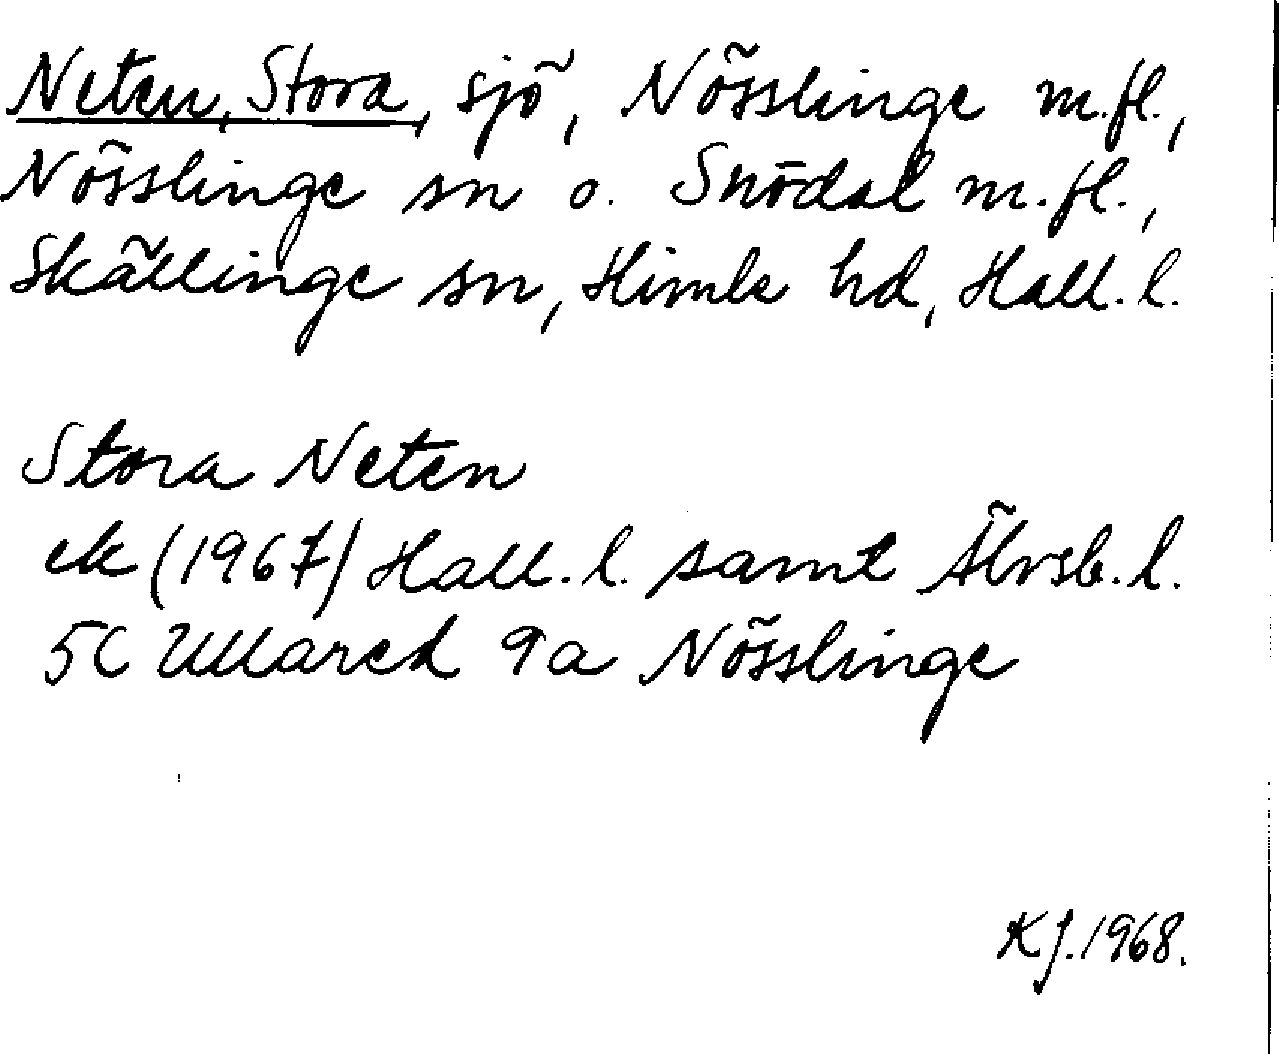 Neten, Stora, sjö, Nösslinge m.fl.,
Nösslinge sn o. Snödal m.fl.,
Skällinge sn, Himle hd, Hall. l.
Stora Neten
ek (1967) Hall. l. samt Älvsb. l.
5C Ullared 9a Nösslinge
KJ. 1968.